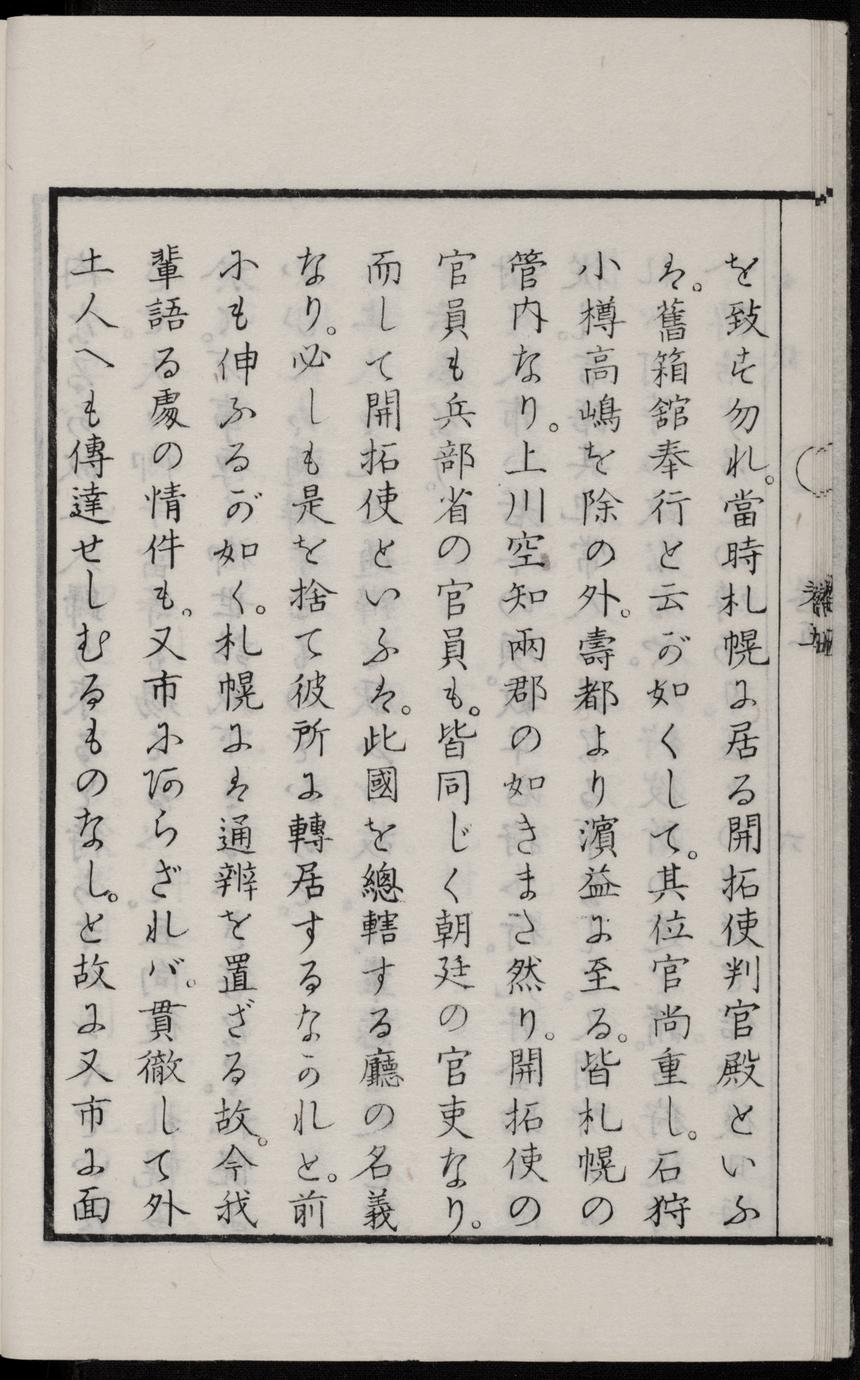 を致す勿れ。當時札幌に居る開拓使判官殿といふ
は。舊箱舘奉行と云が如くして。其位官尚重し。石狩
小樽高嶋を除の外。壽都より濱益に至る。皆札幌の
管内なり。上川空知兩郡の如きまさ然り。開拓使の
官員も兵部省の官員も。皆同じく朝廷の官吏なり。
而して開拓使といふは。此國を總轄する廳の名義
なり。必しも是を捨て彼所に轉居するなかれと。前
にも伸ふるが如く。札幌には通辨を置ざる故。今我
輩語る處の情件も。又市に阿らざれバ。貫徹して外
土人へも傳達せしむるものなし。と故に又市に面